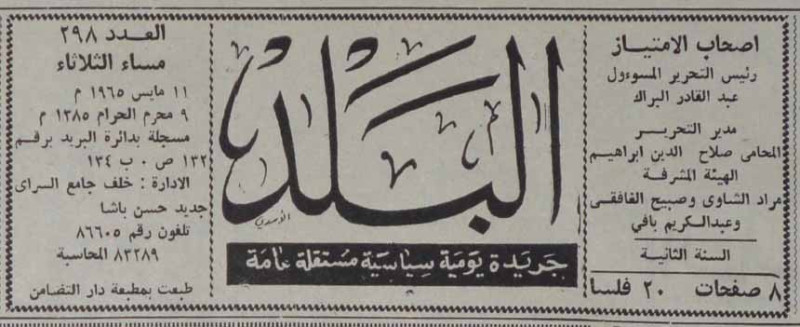 اصحاب الامتياز
رئيس التحرير المسوءول
عبد القادر البراك
مدير التحرير
المحامى صلاح الدين ابراهيم
الهيئة المشرفة
مراد الشاوى وصبيح الغافقى
وعبدالكريم بافي
السنة الثانية
٨ صفحات ٢٠ فلسا
البلد
الأسدي
جريدة يومية سياسية مستقلة عامة
العدد ٢٩٨
مساء الثلاثاء
١١ مايس ١٩٦٥ م
٩ محرم الحرام ١٣٨٥ م
مسجلة بدائرة البريد برقم
١٣٢ ص ٠ ب ١٣٤
الادارة : خلف جامع السراى
جديد حسن باشا
تلفون رقم ٨٦٦٠٥
٨٣٢٨٩ المحاسبة
طبعت بمطبعة دار التضامن